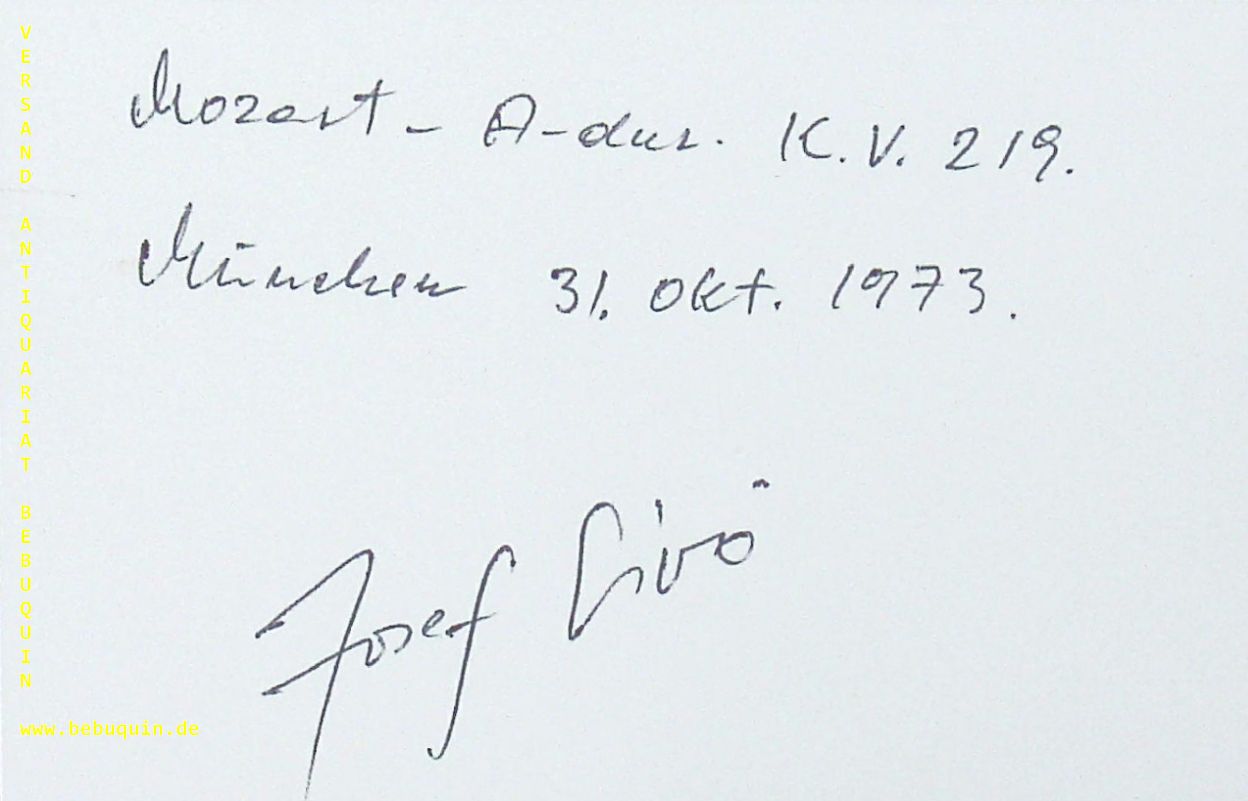 Mozart – A-dur. K.V. 219.
München 31. Okt. 1973.
Josef Sivó
VERSAND ANTIQUARIAT BEBUQUIN
www.bebuquin.de